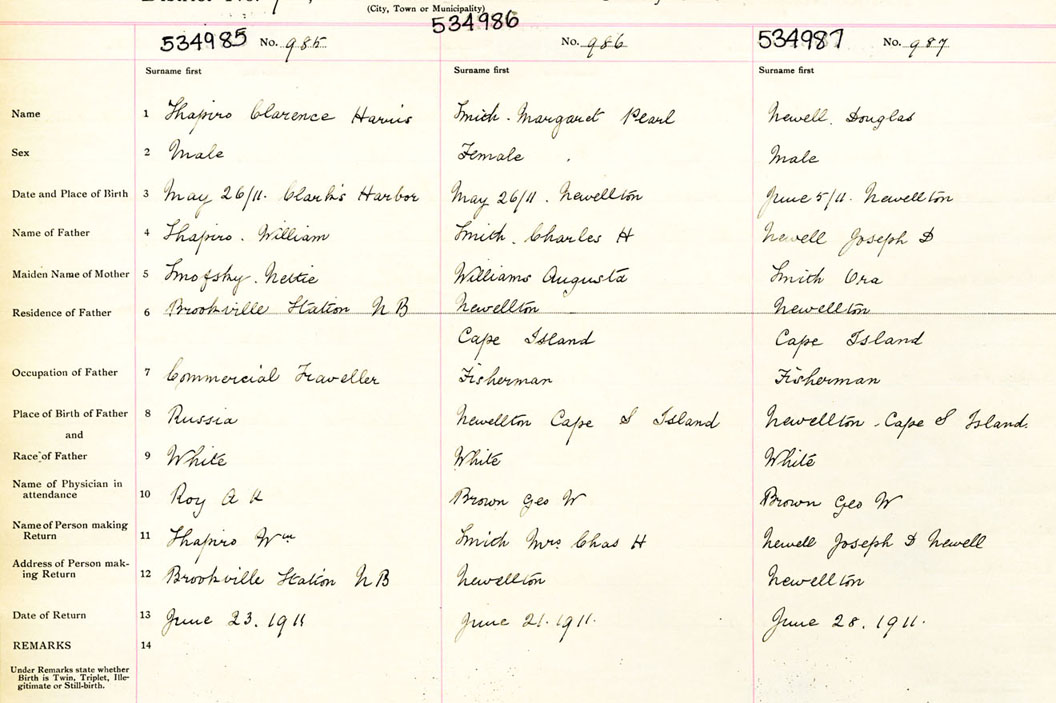 (City, Town or Municipality)
534985 No. 985 534986 No. 986 534987 No. 987
Surname first Surname first Surname first
Name 1 Shapiro Clarence Harris Smith. Margaret Pearl Newell. Douglas
Sex 2 Male Female Male
Date and Place of Birth 3 May 26/11. Clark's Harbor May 26/11. Newellton June 5/11. Newellton
Name of Father 4 Shapiro. William Smith. Charles H Newell Joseph D
Maiden Name of Mother 5 Smofsky. Nettie Williams Augusta Smith Ora
Residence of Father 6 Brookville Station N B Newellton Newellton
Cape Island Cape Island
Occupation of Father 7 Commercial Traveller Fisherman Fisherman
Place of Birth of Father 8 Russia Newellton Cape S Island Newellton. Cape S Island.
and
Race of Father 9 White White White
Name of Physician in
attendance 10 Roy A K Brown Geo W Brown Geo W
Name of Person making
Return 11 Shapiro Wm Smith Mrs Chas H Newell Joseph D Newell
Address of Person mak-
ing Return 12 Brookville Station N B Newellton Newellton
Date of Return 13 June 23. 1911 June 21. 1911. June 28. 1911.
REMARKS 14
Under Remarks state whether
Birth is Twin, Triplet, Ille-
gitimate or Still-birth.